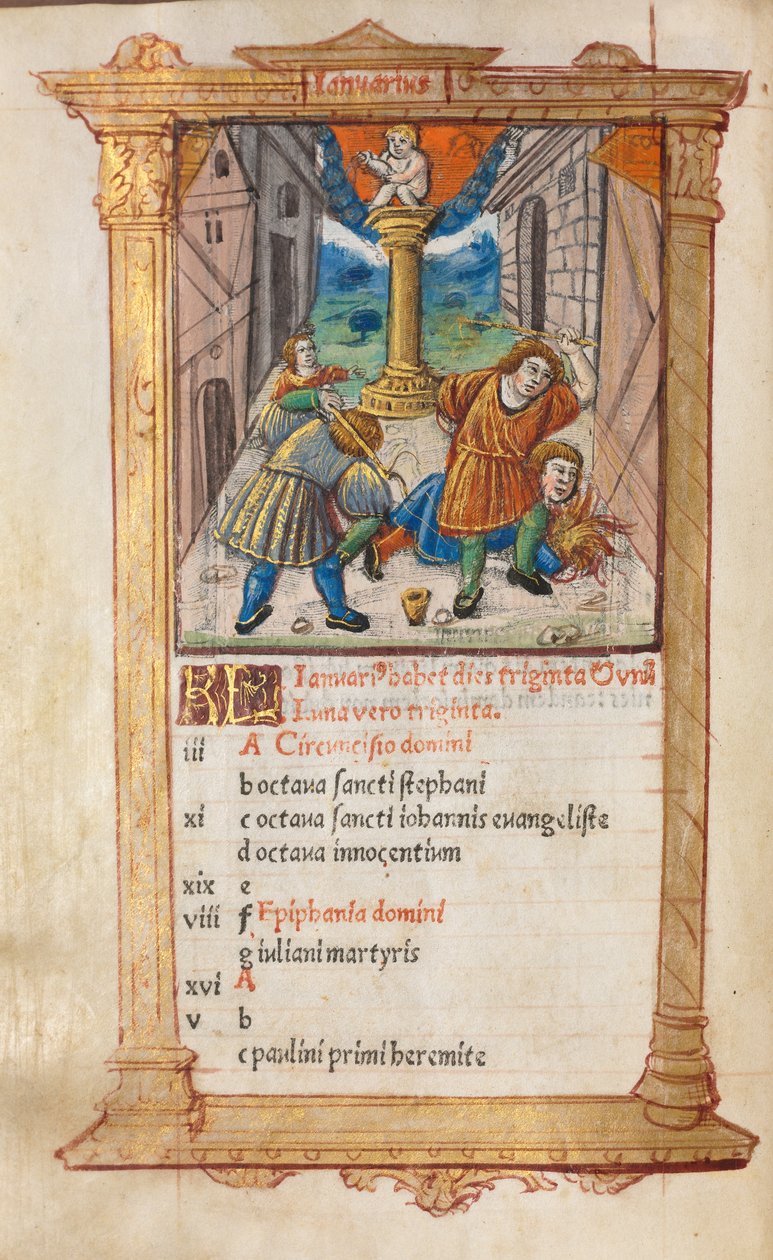 Ianuarius
KL Ianuariꝰ habet dies triginta Ꝋvnũ
Luna vero triginta.
iii A Circuncisio domini
b octaua sancti stephani
xi c octaua sancti iohannis euangeliste
d octaua innocentium
xix e
viii f Epiphania domini
g iuliani martyris
xvi A
v b
c paulini primi heremite